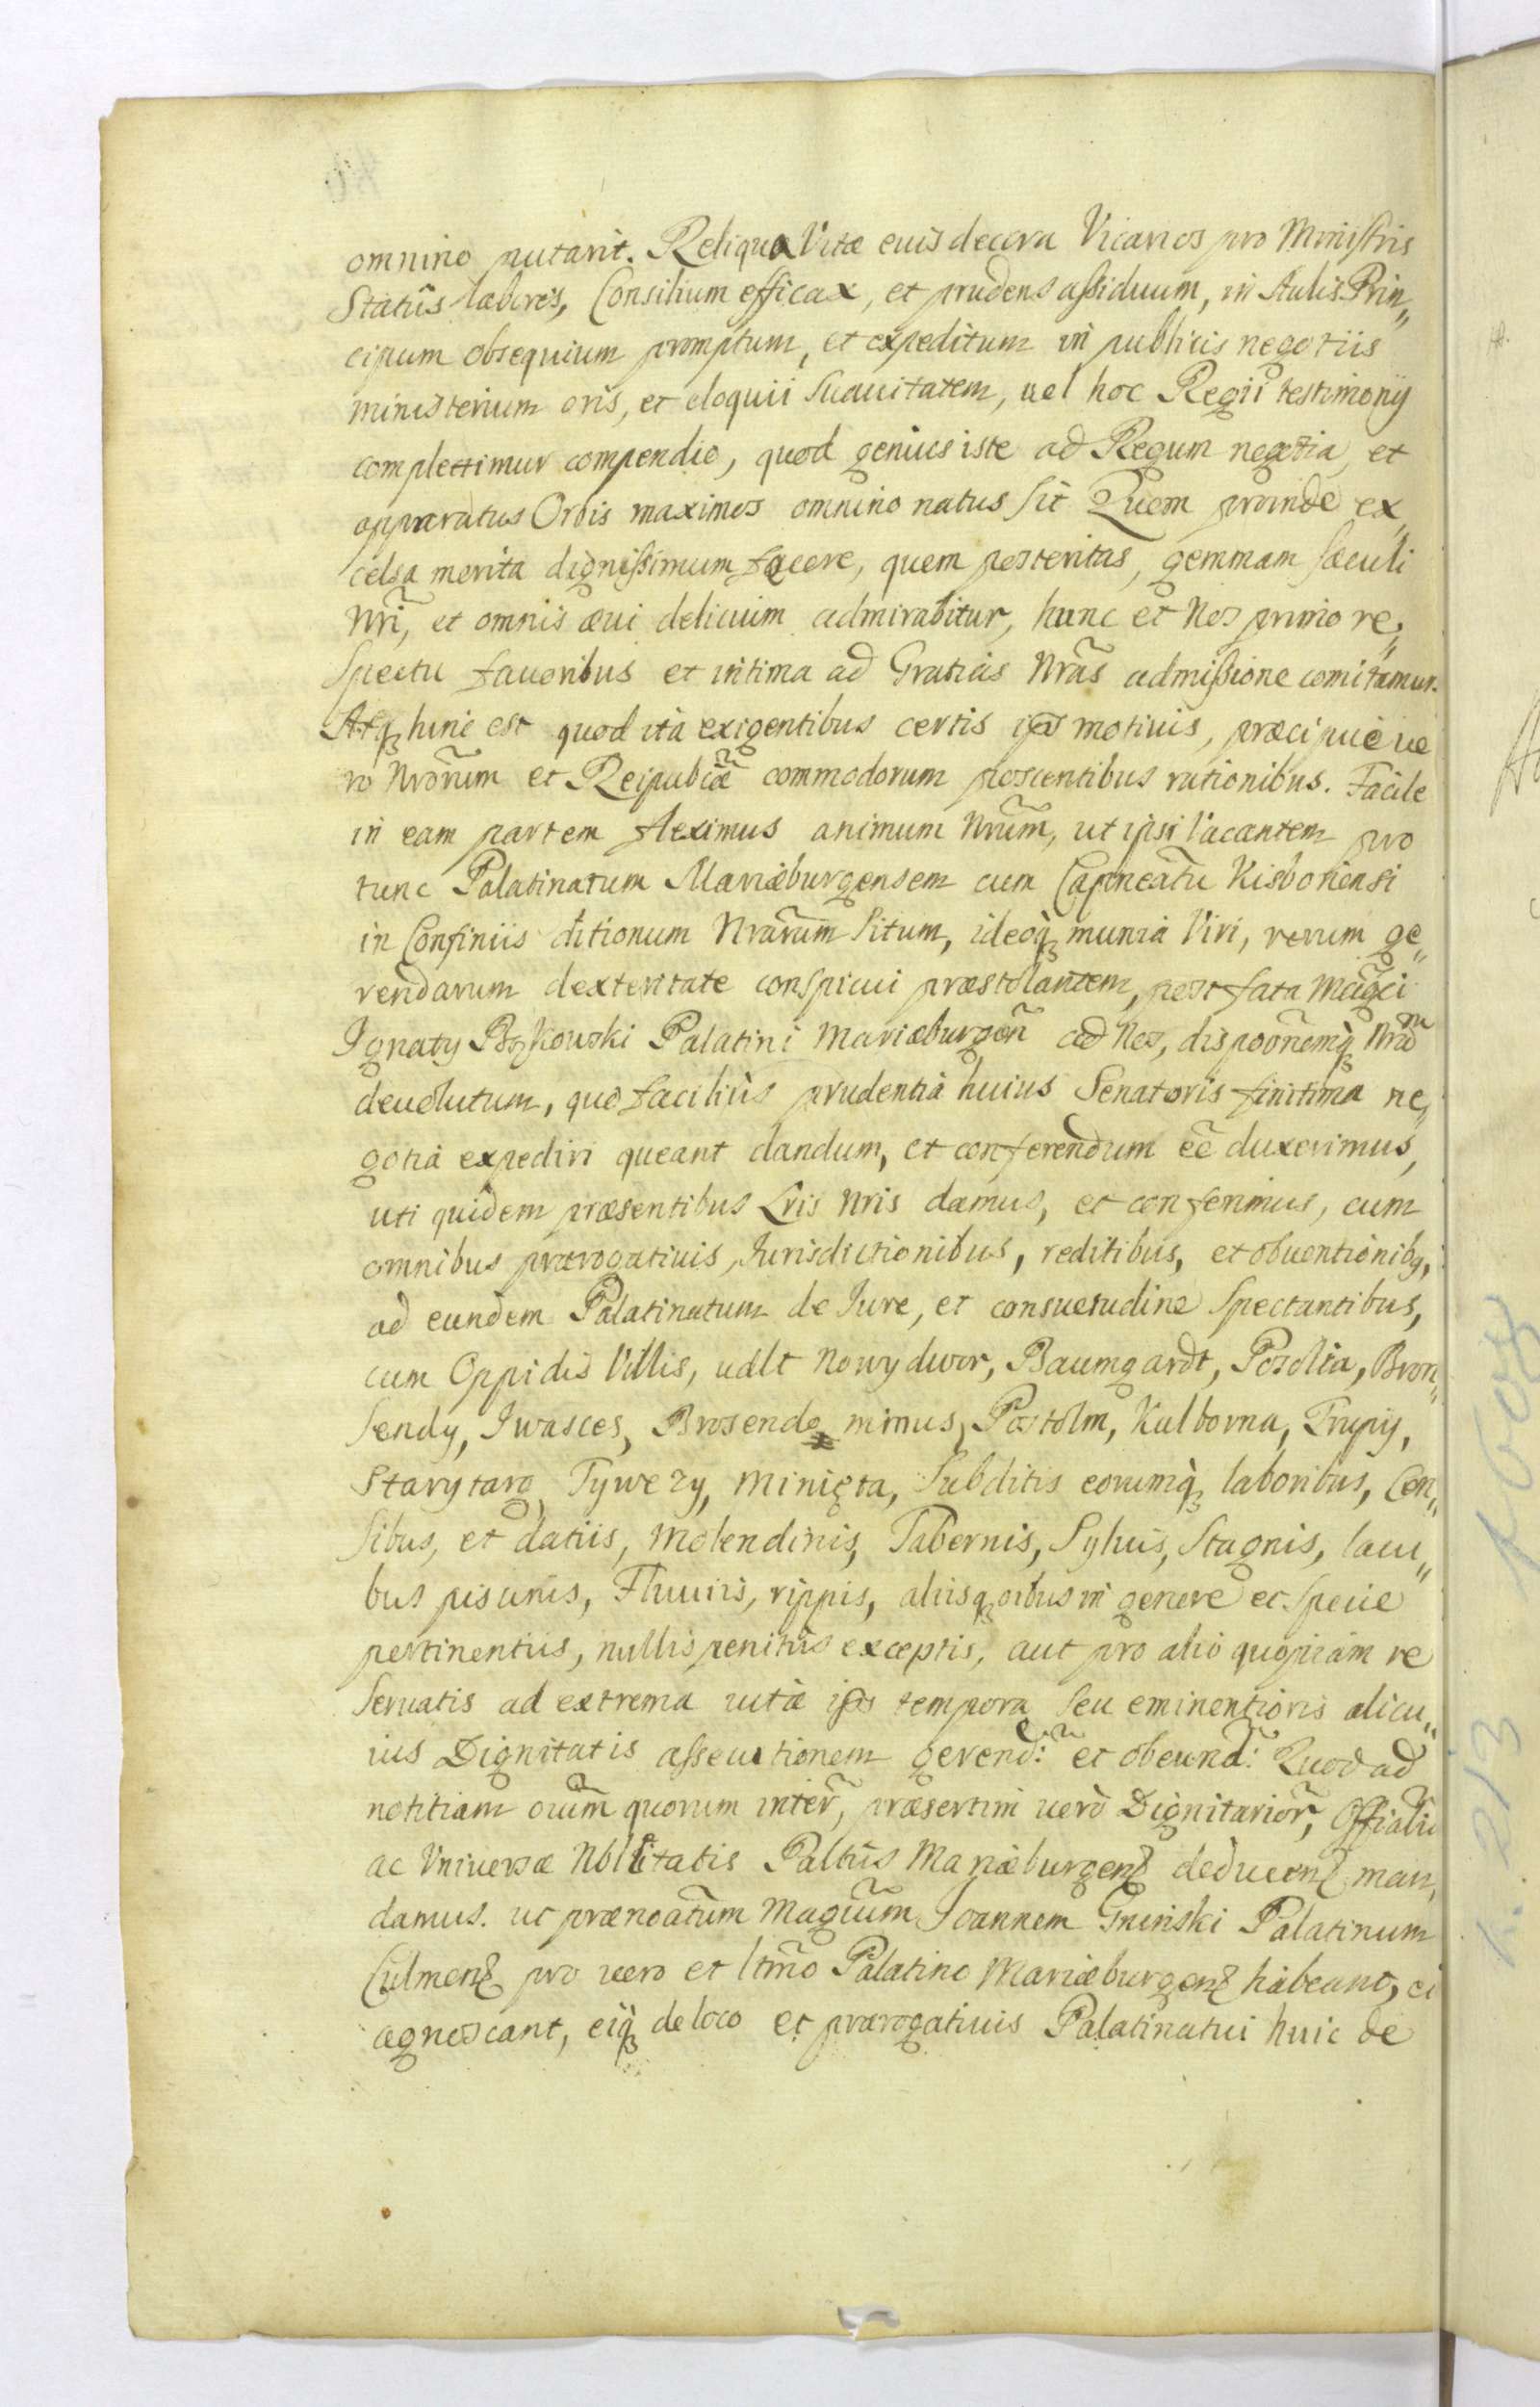 omnino putarit. Reliqua Vitæ euis decora Vicarios pro Ministris
Statûs labores, Consilium efficax, et prudens assiduum, in Aulis Prin„
cipum obsequium promptum, et expeditum in publicis negotiis
ministerium oris, et eloquii suauitatem, uel hoc Regii testimonij
complectimur compendio, quod genius iste ad Regum negotia, et
apparatus Orbis maximos omnino natus sit Quem proinde ex„
celsa merita dignissimum facere, quem posteritas, gemmam sæculi
Nrĩ, et omnis æui delicuim admirabitur, hunc et Nos primo re„
spectu fauoribus et intima ad Gratias Nrãs admissione comitamur.
Atq hinc est quod ità exigentibus certis ips motiuis, præcipuè ue
ro Nrõrum et Reipublcæ commodorum poscentibus rationibus. Facile
in eam partem fleximus animum Nrũm, ut ipsi Vacantem pro
tunc Palatinatum Mariæburgensem cum Capneatu Kisboriensi
in Confiniis ditionum Nrãrum situm, ideoq munia Viri, rerum ge„
rendarum dexteritate conspicui præstolantem, post fata Magci
Ignaty Bąkowski Palatini Mariæburgeñ ad Nos, dispoõnemq Nrãm
deuolutum, quo faciliùs prudentiâ huius Senatoris finitima ne„
gotia expediri queant dandum, et conferendum eẽ duxerimus,
uti quidem præsentibus Lris Nris damus, et conferimus, cum
omnibus prærogatiuis, Iurisdictionibus, reditibus, et obuentionibq,
ad eundem Palatinatum de Iure, et consuetudine spectantibus,
cum Oppidis Villis, udlt Nowydwor, Baumgardt, Posolia, Bron„
sendy, Iwasces, Brosende minus, Postolm, Kalborna, Trupij,
Starytarg, Tywezy, Minięta, Subditis eorumq laboribus, Cen„
sibus, et datiis, Molendinis, Tabernis, Syluis, Stagnis, lacu„
bus piscinis, Fluuiis, rippis, aliisq oibus in genere et specie
pertinentiis, nullis penitùs exceptis, aut pro alio quopiam re
seruatis ad extrema uitæ ips tempora seu eminentioris alicu„
ius Dignitatis assecutionem gerend: et obeund: Quod ad
notitiam oium quorum inter̃, præsertim uerò Dignitarior̃, Offialiũ
ac Vniuersæ Nbllitatis Paltûs Mariæburgenꝭ deducenꝭ man„
damus. ut prænoatum Magcum Ioannem Gniński Palatinum
Culmenꝭ pro uero et ltmo Palatino Mariæburgenꝭ habeant, et
agnoscant, eiq de loco et prærogatiuis Palatinatui huic de